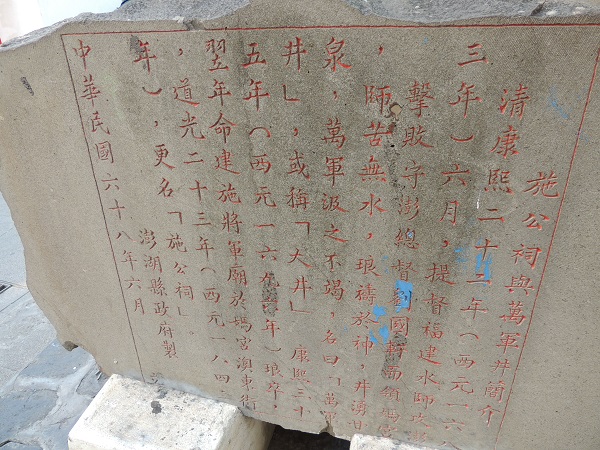 施公祠與萬軍井簡介
清康熙二十二年（西元一六八
三年）六月，提督福建水師
擊敗守澎總督劉國軒而領媽宮
，師苦無水，琅禱於神，井湧甘
泉，萬軍汲之不竭，名曰「萬軍
井」，或稱「大井」康熙三十
五年（西元一六年）琅卒，
翌年命建施將軍廟於媽宮澳東街
，道光二十三年（西元一八四
年），更名「施公祠」。
澎湖縣政府製
中華民國六十八年六月